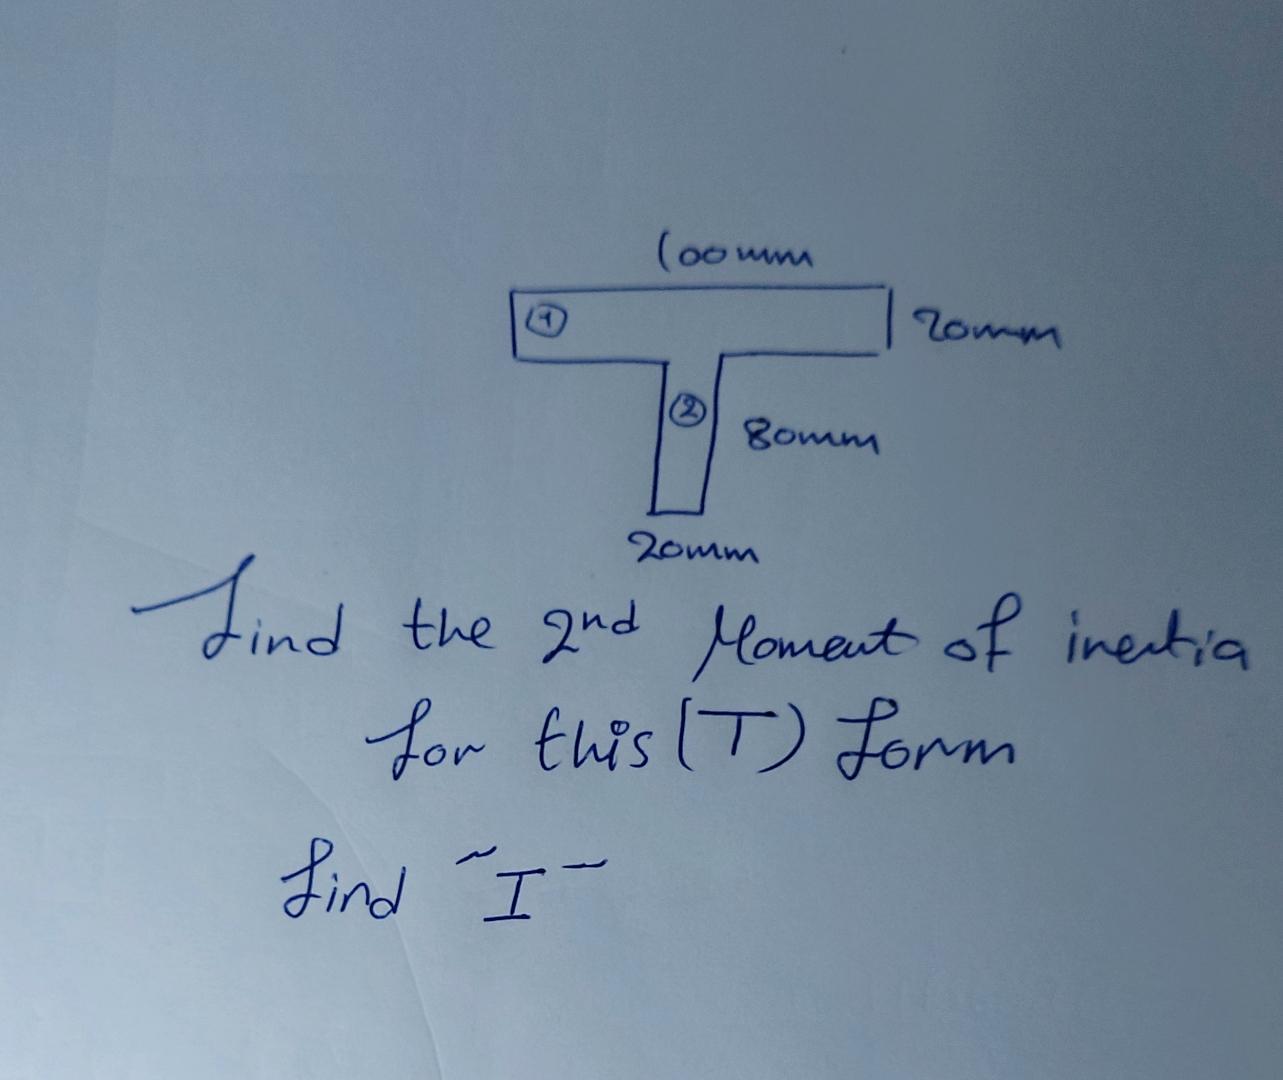 100mm
① 20mm
② 80mm
20mm
find the 2nd Moment of inertia
for this (T) form
find "I"